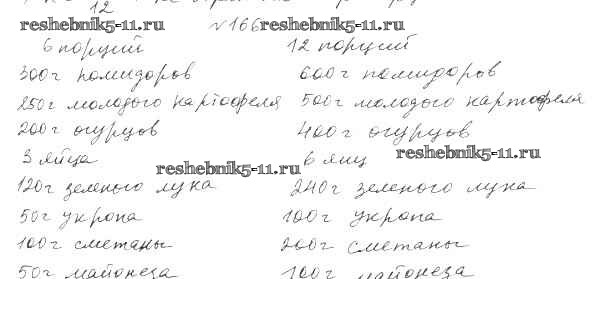 12
reshebnik5-11.ru №166 reshebnik5-11.ru
6 порций 12 порций
300г помидоров 600г помидоров
250г молодого картофеля 500г молодого картофеля
200г огурцов 400г огурцов
3 яйца 6 яиц reshebnik5-11.ru
reshebnik5-11.ru
120г зеленого лука 240г зеленого лука
50г укропа 100г укропа
100г сметаны 200г сметаны
50г майонеза 100г майонеза